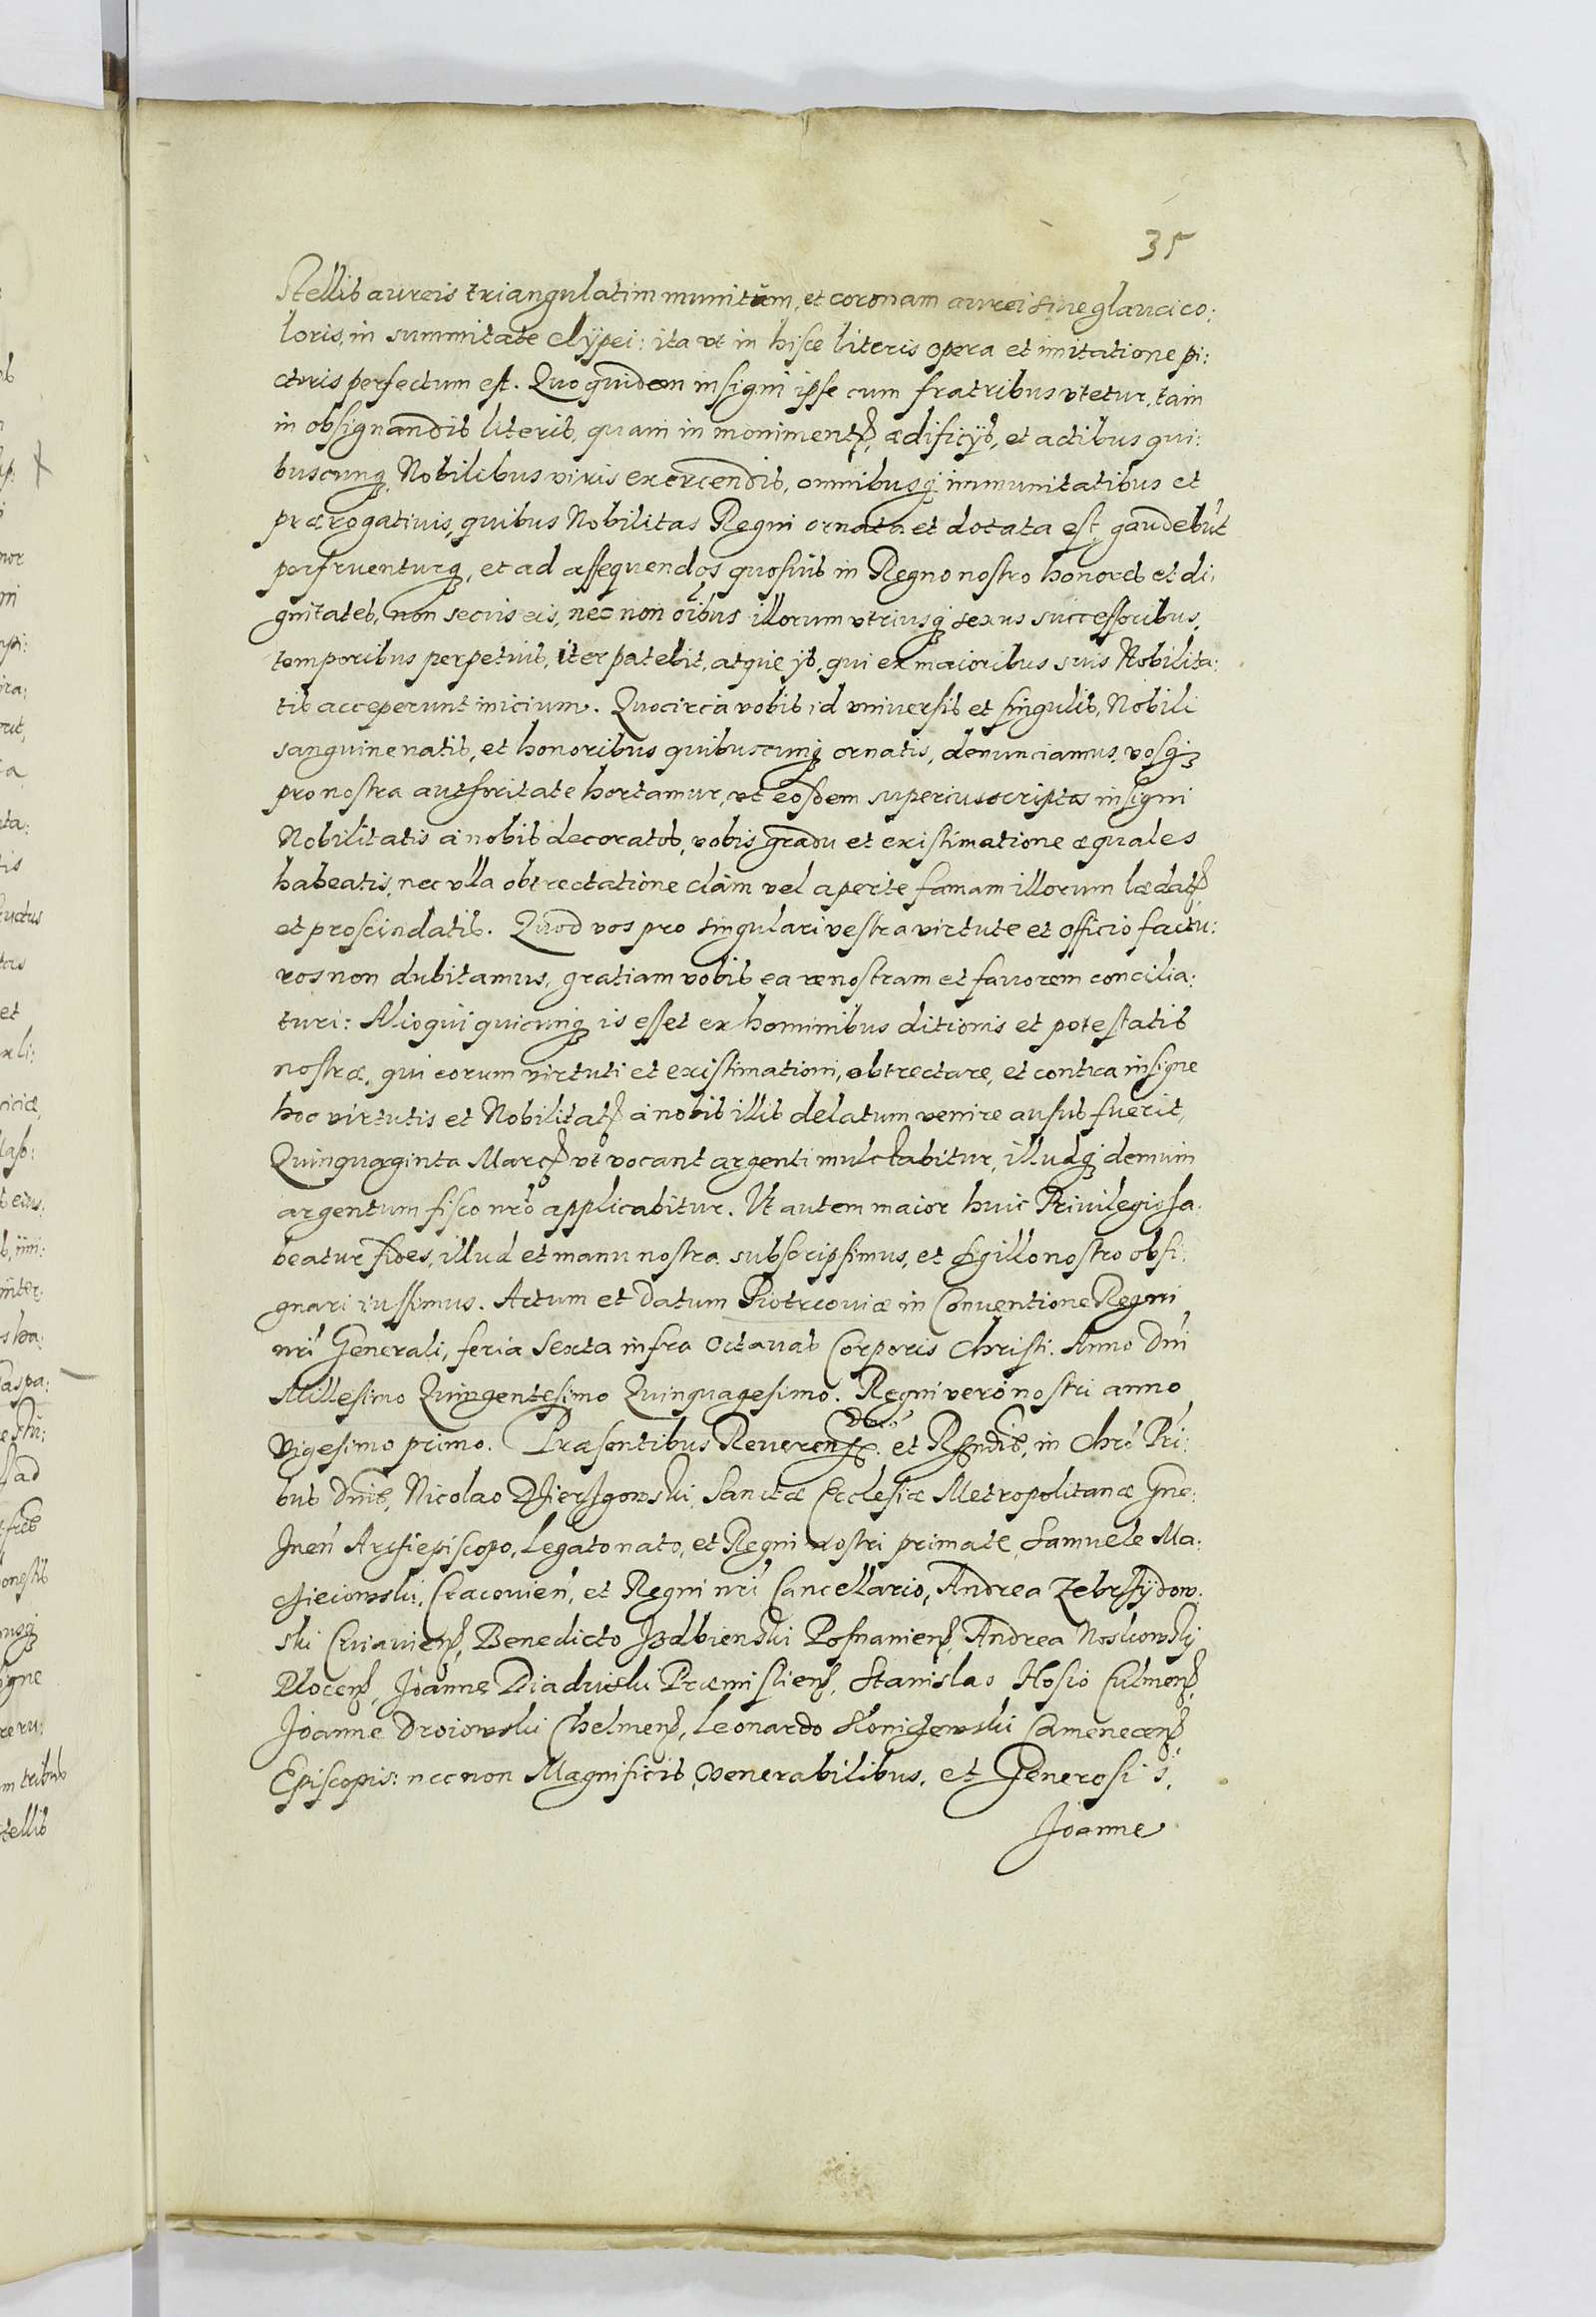 35
Stellis aureis triangulatim munitum, et coronam aurei sive glauci co:
loris, in summitate clÿpei: ita vt in hisce literis opera et imitatione pi:
cturis perfectum est. Quo quidem insigni ipse cum fratribus vtetur, tam
in obsignandis literis, quam in monimentis, ædificijs, et actibus qui:
buscunq, Nobilibus viris exercendis, omnibusq immunitatibus et
prærogativis, quibus Nobilitas Regni ornata et dotata est, gaudebūt
perfruenturq, et ad assequendos quosvis in Regno nostro honores et di:
gnitates, non secus eis, nec non oībus illorum vtriusq sexus successoribus,
temporibus perpetuis, iter patebit, atque ijs, qui ex maioribus suis Nobilita:
tis acceperunt inicium. Quocirca vobis id vniversis et singulis, Nobili
sanguine natis, et honoribus quibuscunq ornatis, denunciamus, vosq
pro nostra authoritate hortamur, vt eosdem superiuscriptos insigni
Nobilitatis à nobis decoratos, vobis gradu et existimatione æquales
habeatis, nec vlla obtrectatione clàm vel aperte famam illorum lædatis
et proscindatis. Quod vos pro singulari vestra virtute et officio factu:
ros non dubitamus, gratiam vobis ea re nostram et favorem concilia:
turi: Alioqui quicunq is esset ex hominibus ditionis et potestatis
nostræ, qui eorum virtuti et existimationi, obtrectare, et contra insigne
hoc virtutis et Nobilitatis à nobis illis delatum venire ausus fuerit,
Quinquaginta Marcis vt vocant argenti mulctabitur, illudq demum
argentum fisco nrō applicabitur. Vt autem maior huic Privilegio ha:
beatur fides, illud et manu nostra subscripsimus, et sigillo nostro obsi:
gnari iussimus. Actum et Datum Piotrcoviæ in Conventione Regni
nrī Generali, feria Sexta infra Octavas Corporis Christi. Anno Dnī
Millesimo Quingentesimo Quinquagesimo. Regni verò nostri anno
vigesimo primo. Præsentibus Reveren et Rndis, in Chrō Pri:
bus Dnis, Nicolao Dzierzgowski, Sanctæ Ecclesiæ Metropolitanæ Gne:
znen Archiepiscopo, Legato nato, et Regni nostri primate, Samuele Ma:
cieiowski, Cracovien, et Regni nrī Cancellario, Andrea Zebrzÿdow:
ski Cuiaviens, Benedicto Izdbienski Posnaniens, Andrea Noskowskÿ
Plocens, Joanne Diaduski Præmisliens, Stanislao Hosio Culmens,
Joanne Droiowski Chelmens, Leonardo Slonczewski Camenecens
Episcopis: nec non Magnificis, Venerabilibus, et Generosis,
Joanne